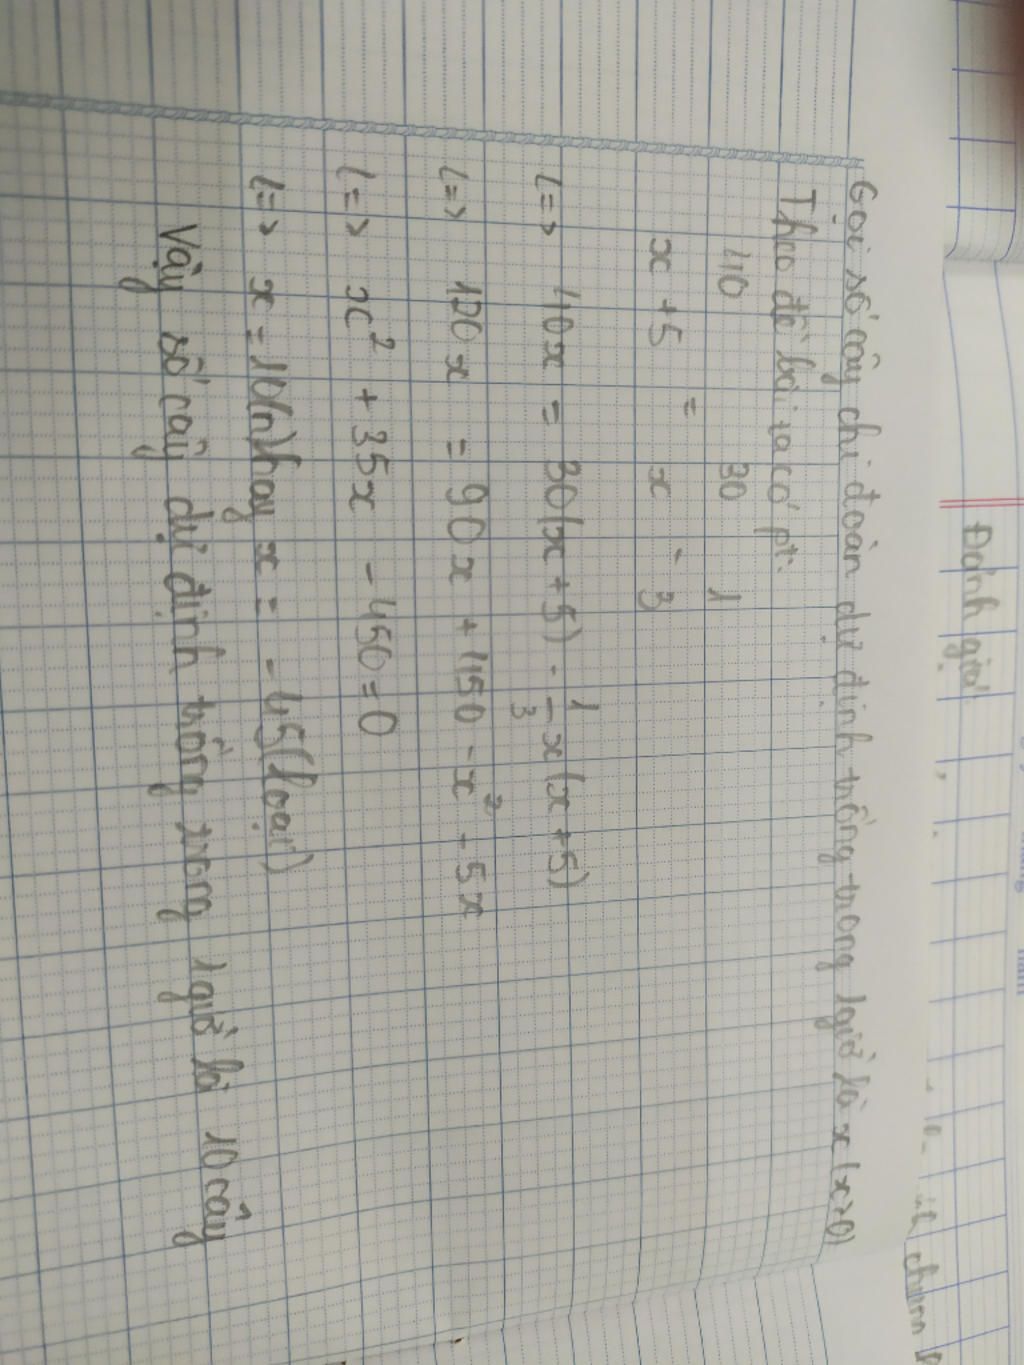 Đánh giá
Gọi số cây chi đoàn dự định trồng trong 1 giờ là x (x>0)
Theo đề bài ta có pt:
40 30 1
x+5 = x - 3
<=> 40x = 30(x+5) - 1/3 x(x+5)
<=> 120x = 90x + 450 - x² - 5x
<=> x² + 35x - 450 = 0
<=> x = 10(n) hay x = -45(loại)
Vậy số cây dự định trồng trong 1 giờ là 10 cây